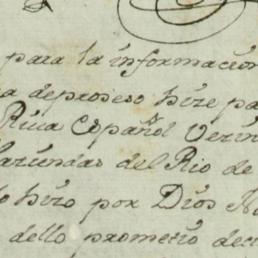 para la informacion
hize pa
Rua Español Vezin
Haziendas del Rio de
hizo por Dios N
dello prometio deci